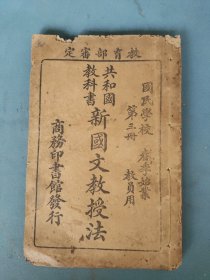 教育部審定
國民學校 春季始業
第三冊 教員用
共和國
教科書
新國文教授法
商務印書館發行